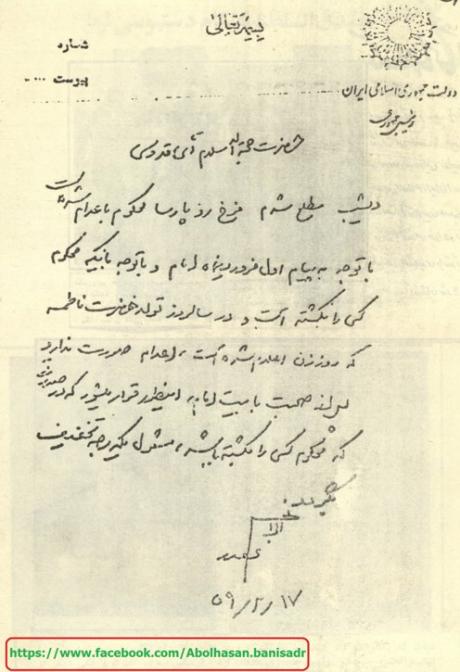 بسمه تعالی
شماره
پیوست ....
دولت جمهوری اسلامی ایران
رئیس جمهوری
حضرت حجة الاسلام آقای قدوسی
دیشب مطلع شدم فرخ رو پارسا محکوم باعدام شده است
با توجه به پیام اول فروردین ماه امام و با توجه باینکه محکوم
کسی را نکشته است و در سالروز تولد حضرت فاطمه
که روز زن اعلام شده است، اعدام صورت ندارد
بعد از صحبت با بیت امام به اینطور قرار میشود که در صورتی
که محکوم کسی را نکشته باشد، مشمول یکدرجه تخفیف
۵۹/۲/۱۷
https://www.facebook.com/Abolhasan.banisadr